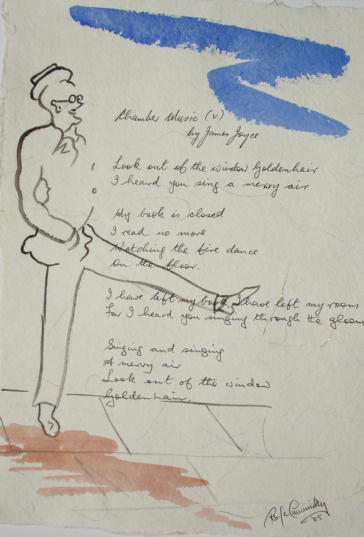 Chamber Music (V)
by James Joyce
Look out of the window Goldenhair
I heard you sing a merry air
My book is closed
I read no more
Watching the fire dance
On the floor.
I have left my book, I have left my room
For I heard you singing through the gloom
Singing and singing
A merry air
Look out of the window
Goldenhair.
'05